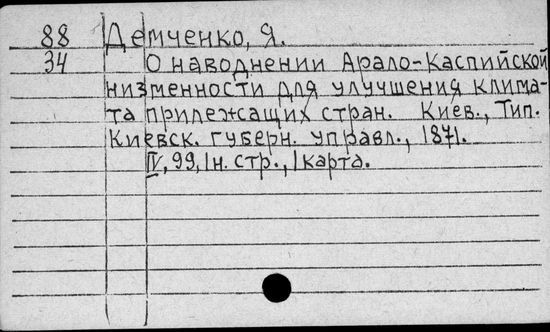 88 Демченко, Я.
34 О наводнении Арало-Каспийской
низменности для улучшения клима-
та прилежащих стран. Киев., Тип.
Киевск. губерн. управл., 1871.
IV, 99, 1н. стр., 1 карта.